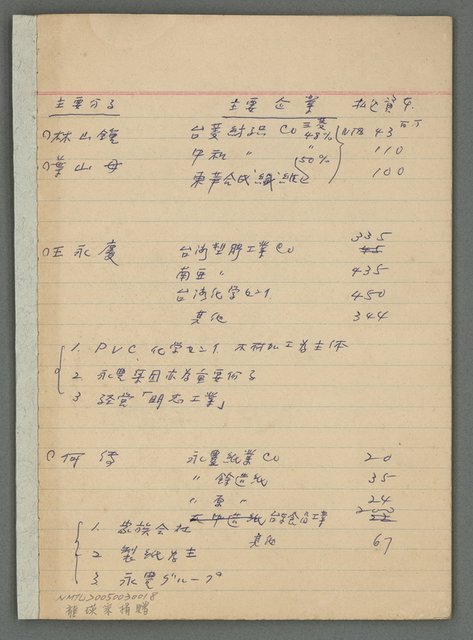 主要分子　主要企業　払込資本
○林山鐘　台菱紡織 Co 三菱 48% NT$ 43 百万
中和 〃 50% 110
○葉山母　東華合成纖維 100
○王永慶　台湾塑膠工業 Co 335 45
南亜 〃 435
台湾化学セニイ 450
其他 344
1. PVC, 化学セニイ, 木材加工為主体
2. 永豊集団亦為重要份子
3. 経営「明志工業」
○何傳　永豊紙業 Co 20
〃 餘造紙 35
〃 原 〃 24
台裕食品工業 200 22
1. 家族会社　其他 67
2. 製紙為主
3. 永豊グループ
NMTL20050030018
龍瑛宗捐贈